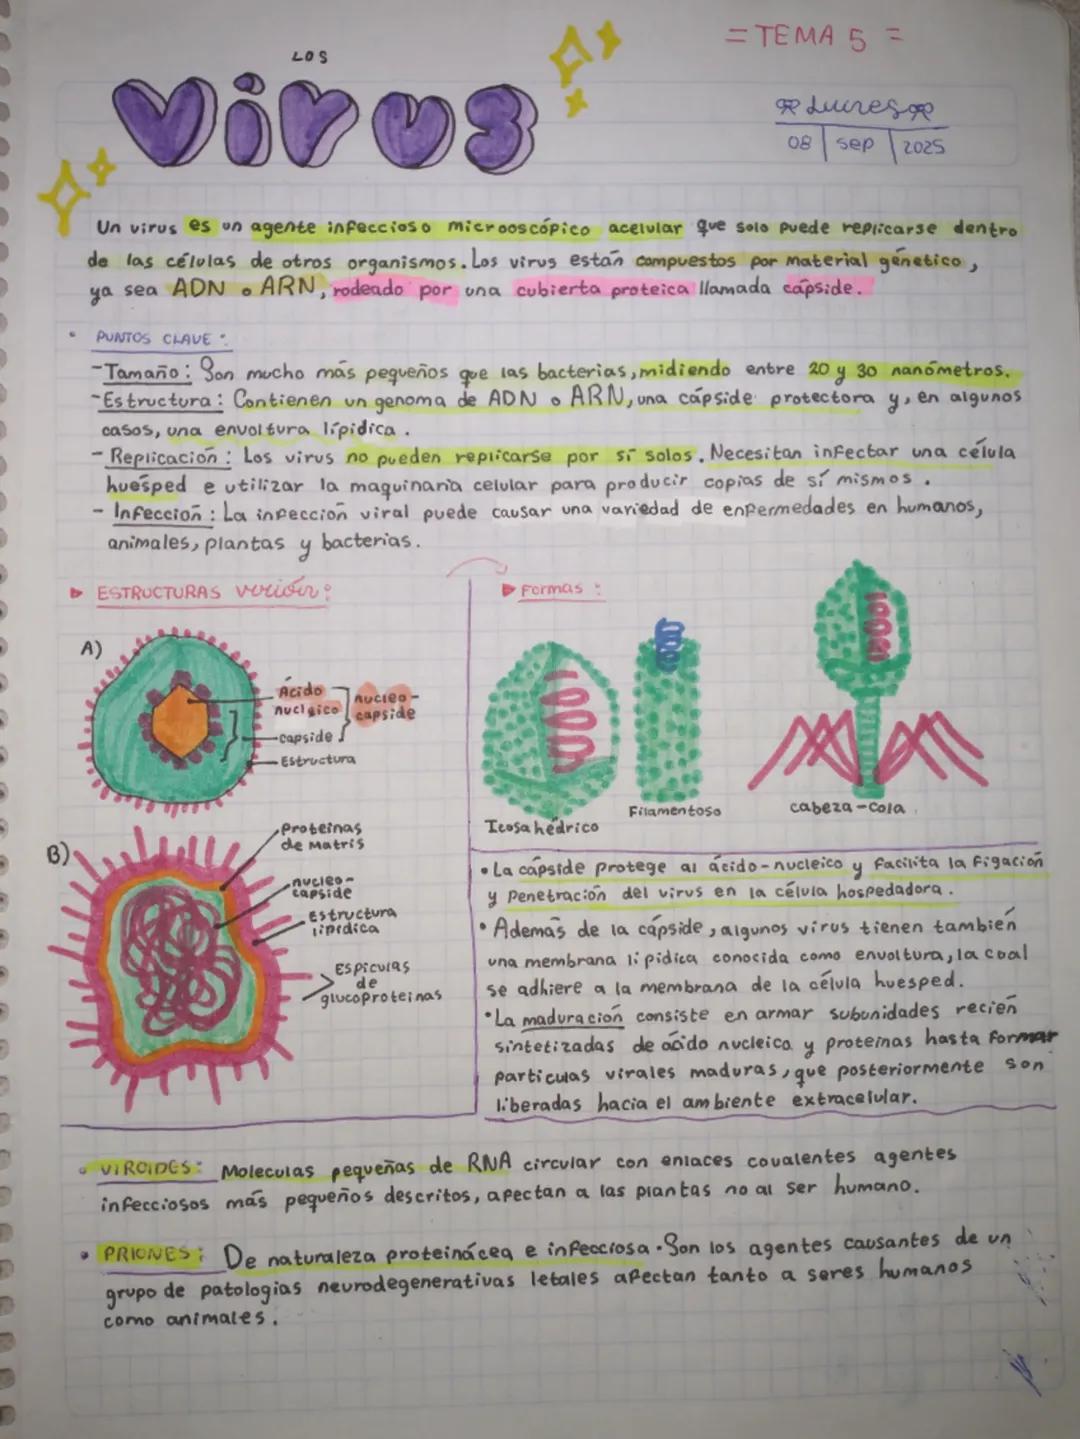 = TEMA 5 =
LOS
Virus
Lunes
08 | sep | 2025
Un virus es un agente infeccioso microoscópico acelular que solo puede replicarse dentro
de las células de otros organismos. Los virus están compuestos por material génetico,
ya sea ADN o ARN, rodeado por una cubierta proteica llamada cápside.
• PUNTOS CLAVE:
- Tamaño: Son mucho más pequeños que las bacterias, midiendo entre 20 y 30 nanómetros.
- Estructura: Contienen un genoma de ADN o ARN, una cápside protectora y, en algunos
casos, una envoltura lípidica.
- Replicación: Los virus no pueden replicarse por sí solos. Necesitan infectar una célula
huésped e utilizar la maquinaria celular para producir copias de sí mismos.
- Infección: La infección viral puede causar una variedad de enfermedades en humanos,
animales, plantas y bacterias.
▶ ESTRUCTURAS virión:
A)
Ácido
nucleico
nucleo-
capside
capside
Estructura
B)
Proteinas
de Matris
nucleo-
capside
Estructura
lipidica
Espiculas
de
glucoproteinas
▶ Formas:
Icosahédrico
Filamentoso
cabeza-cola.
• La cápside protege al ácido-nucleico y facilita la figación
y penetración del virus en la célula hospedadora.
• Además de la cápside, algunos virus tienen también
una membrana lipidica conocida como envoltura, la cual
se adhiere a la membrana de la célula huesped.
• La maduración consiste en armar subunidades recién
sintetizadas de ácido nucleico y proteinas hasta formar
particulas virales maduras, que posteriormente son
liberadas hacia el ambiente extracelular.
• VIROIDES: Moleculas pequeñas de RNA circular con enlaces covalentes agentes
infecciosos más pequeños descritos, afectan a las plantas no al ser humano.
• PRIONES: De naturaleza proteinácea e infecciosa. Son los agentes causantes de un
grupo de patologias neurodegenerativas letales afectan tanto a seres humanos
como animales.